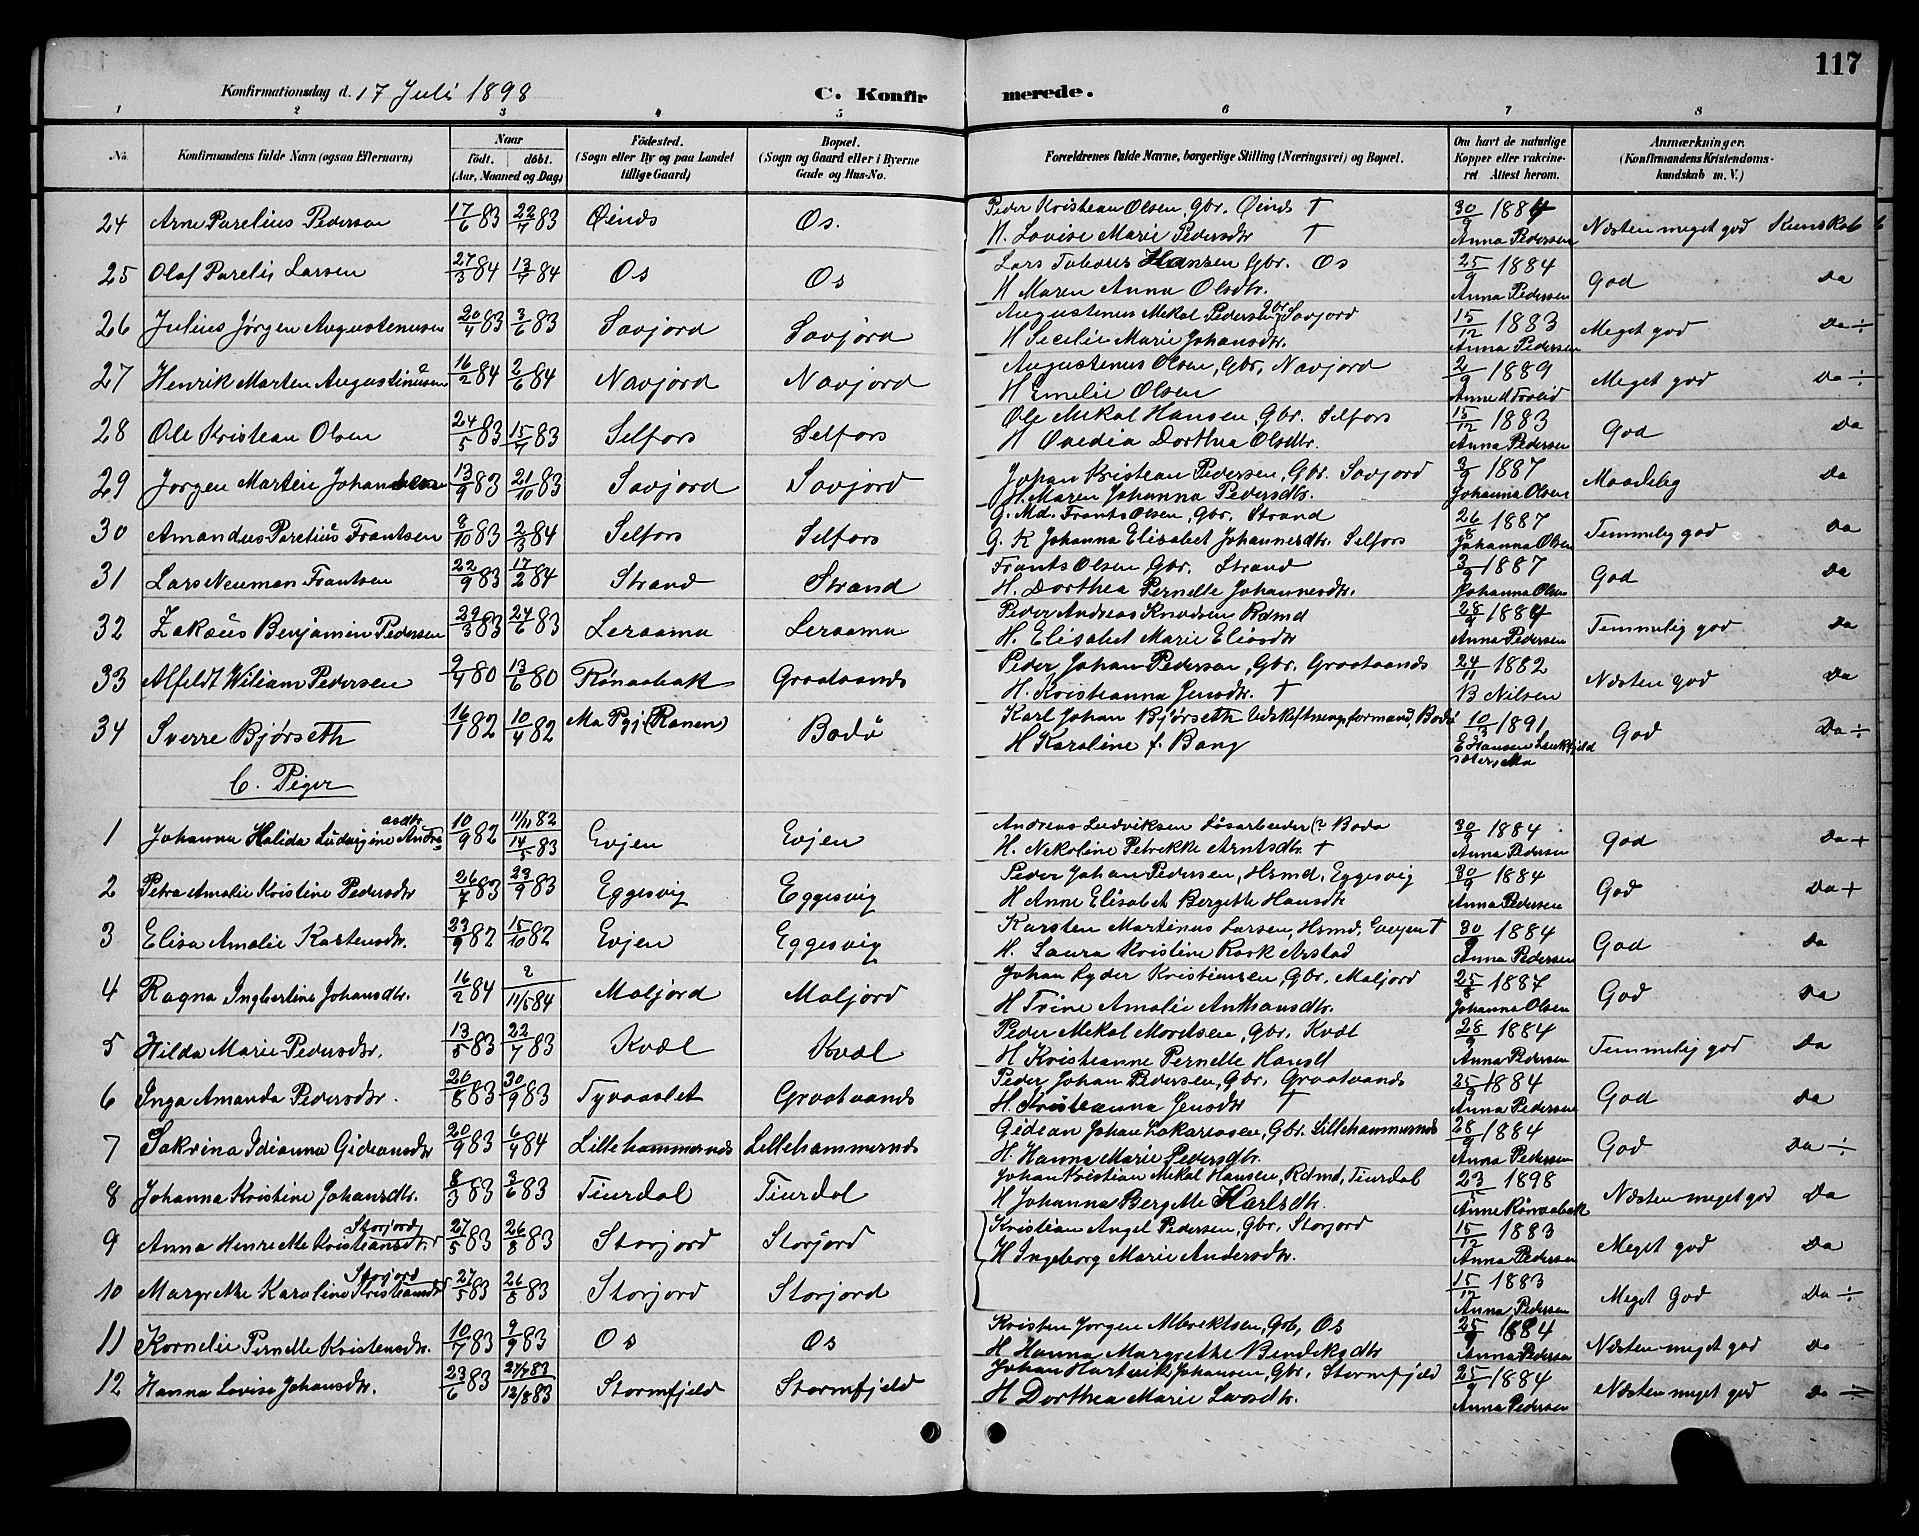 117
Konfirmationsdag d. 17 Juli 1898 C. Konfirmerede.
1 2 3 4 5 6 7 8
No. Konfirmandens fulde Navn (ogsaa Efternavn) Naar födt. döbt. (Aar, Maaned og Dag) Födested. (Sogn eller By og paa Landet tillige Gaard) Bopæl. (Sogn og Gaard eller i Byerne Gade og Hus-No. Forældrenes fulde Navne, borgerlige Stilling (Næringsvei) og Bopæl. Om havt de naturlige Kopper eller vakcineret Attest herom. Anmærkninger. (Konfirmandens Kristendomskundskab m. V.)
24 Arne Parelius Pedersen 17/6 83 22/7 83 Øinds Os. Peder Kristean Olsen, Gbr. Øinds † 30/9 1884 Næsten meget god Kunskab
H. Lovise Marie Pedersdtr † Anna Pedersen
25 Olaf Parelis Larsen 27/3 84 13/7 84 Os Os Lars Tobias Hansen Gbr. Os 25/9 1884 God Da
H Maren Anna Olsdtr. Anna Pedersen
26 Julius Jørgen Augustenusen 20/4 83 3/6 83 Savjord Savjord Augustenus Mekal Pedersen Gbr Savjord 15/12 1883 Meget god Da ÷
H Secilie Marie Johansdtr. Anna Pedersen
27 Henrik Marten Augustinusen 16/2 84 2/6 84 Navjord Navjord Augustenus Olsen, Gbr, Navjord 2/9 1889 Meget god Da ÷
H Emelie Olsen Anne
28 Ole Kristean Olsen 24/5 83 15/7 83 Selfors Selfors Ole Mekal Hansen, Gbr. Selfors 15/12 1883 God Da
H Ovedia Dorthea Olsdtr. Anna Pedersen
29 Jørgen Martin Johansen 13/9 83 21/10 83 Savjord Savjord Johan Kristean Pedersen, Gbr. Savjord 3/9 1887 Maadeleg Da
H. Maren Johanna Pedersdtr. Johanna Olsen
30 Amandus Parelius Frantsen 8/10 83 2/3 84 Selfors Selfors G. Md. Frants Olsen, Gbr. Strand 26/8 1887 Temmeleg god Da
G. K Johanna Elisabet Johannesdtr. Selfors Johanna Olsen
31 Lars Neuman Frantsen 22/9 83 17/2 84 Strand Strand Frants Olsen Gbr. Strand 3/9 1887 God Da
H. Dorthea Pernelle Johannesdtr. Johanna Olsen
32 Zakæus Benjamin Pedersen 29/3 83 24/6 83 Leraamo Leraamo Peder Andreas Knudsen Rdmd 28/9 1884 Temmelig god Da
H. Elisabet Marie Eliasdtr Anna Pedersen
33 Alfeldt Wiliam Pedersen 9/4 80 13/6 80 Rønaabak Graataands Peder Johan Pedersen, Gbr. Graataands 24/11 1882 Næsten god Da
H. Kristeanna Jensdtr. † B Nilsen
34 Sverre Bjørseth 16/1 82 10/4 82 Mo Pgj (Ranen) Bodø Karl Johan Bjørseth Udskiftningsformand, Bodø 10/3 1891 God Da ÷
H Karoline f. Bang E Hansen
C. Piger
1 Johanna Halida Ludvigine Andreasdtr 10/9 82 11/11 82 14/5 83 Evjen Evjen Andreas Ludviksen Løsarbeider (? Bodø 30/9 1884 God Da +
H. Nekoline Petrekke Arntsdtr. † Anna Pedersen
2 Petra Amalie Kristine Pedersdtr 26/7 83 23/9 83 Eggesvig Eggesvig Peder Johan Pedersen, Hsmd, Eggesvig 30/9 1884 God Da +
H Anne Elisabet Bergette Hansdtr Anna Pedersen
3 Elisa Amalie Karstensdtr. 23/9 82 15/10 82 Evjen Eggesvig Karsten Martinus Larsen, Hsmd, Evejen † 30/9 1884 God Da
H. Laura Kristine Arstad Anna Pedersen
4 Ragna Ingbertine Johansdtr. 16/2 84 2 11/5 84 Maljord Maljord Johan Lyder Kristensen, Gbr, Maljord 25/8 1887 God Da
H Trine Amalie Anthonsdtr. Johanna Olsen
5 Hilda Marie Pedersdtr. 13/5 83 22/7 83 Kvæl Kvæl Peder Mekal Mordsen, Gbr, Kvæl 28/9 1884 Temmelig god Da
H Kristeanne Pernelle Hansd Anna Pedersen
6 Inga Amanda Pedersdtr. 20/8 83 30/9 83 Tyvaaslet Graataands Peder Johan Pedersen, Gbr, Graataands 25/9 1884 God Da
H. Kristeanna Jensdtr † Anna Pedersen
7 Sakrina Idianna Gideansdtr 20/9 83 6/4 84 Lillehammernds Lillehammernds Gidean Johan Zakariasen, Gbr. Lillehammernds 28/9 1884 God Da ÷
H. Hanna Marie Pedersdtr. Anna Pedersen
8 Johanna Kristine Johansdtr. 8/3 83 3/6 83 Tiurdal Tiurdal Johan Kristian Mekal Hansen, Rdmd, Tiurdal 23/5 1898 Næsten meget god Da
H Johanna Bergette Karlsdtr. Anne Rønaabak
9 Anna Henrette Kristiansdtr. Storjord 27/5 83 26/8 83 Storjord Storjord Kristian Angel Pedersen, Gbr, Storjord 15/12 1883 Meget god Da
H Ingeborg Marie Andersdtr. Anna Pedersen
10 Margrethe Karoline Kristiansdtr Storjord 27/5 83 26/8 83 Storjord Storjord 15/12 1883 Meget God Da ÷
Anna Pedersen
11 Kornelie Pernelle Kristensdtr. 10/7 83 9/9 83 Os Os Kristen Jørgen Albrektsen, Gbr, Os 25/9 1884 Næsten meget god Da
H Hanna Margrethe Bendiksdtr Anna Pedersen
12 Hanna Lovise Johansdtr. 23/6 83 27/7 83 12/8 83 Stormfjeld Stormfjeld Johan Hartvik Johansen, Gbr, Stormfjeld 25/9 1884 Næsten meget god Da ÷
H Dorthea Marie Larsdtr. Anna Pedersen